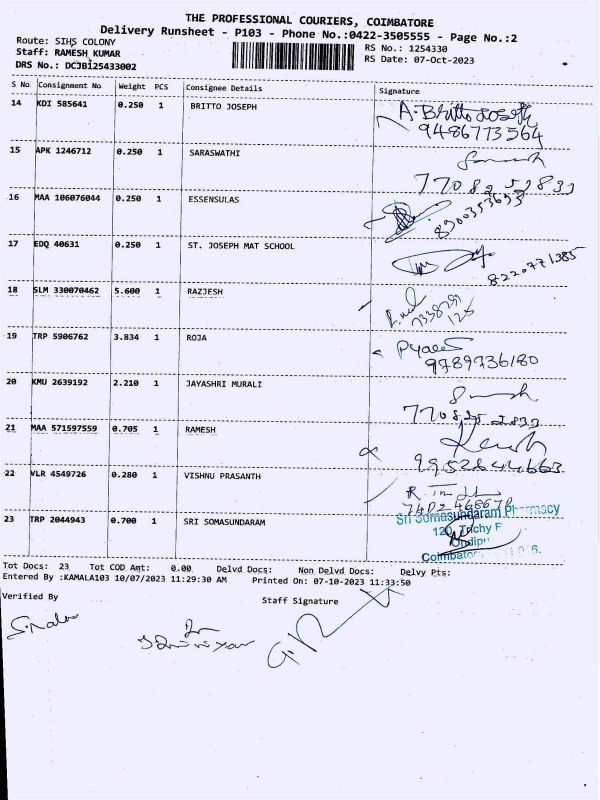 THE PROFESSIONAL COURIERS, COIMBATORE
Delivery Runsheet - P103 - Phone No.:0422-3505555 - Page No.:2
Route: SIHS COLONY
RS No.: 1254330
Staff: RAMESH KUMAR
RS Date: 07-Oct-2023
DRS No.: DCJB125433002
S No Consignment No Weight PCS Consignee Details Signature
14 KDI 585641 0.250 1 BRITTO JOSEPH A.Britto Joseph
9486773564
15 APK 1246712 0.250 1 SARASWATHI
7708252833
16 MAA 106076044 0.250 1 ESSENSULAS
17 EDQ 40631 0.250 1 ST. JOSEPH MAT SCHOOL
8220771385
18 SLM 330070462 5.600 1 RAZJESH
19 TRP 5906762 3.834 1 ROJA
9789736180
20 KMU 2639192 2.210 1 JAYASHRI MURALI
7708252833
21 MAA 571597559 0.705 1 RAMESH
9952644663
22 VLR 4549726 0.280 1 VISHNU PRASANTH
23 TRP 2044943 0.700 1 SRI SOMASUNDARAM
Sri Somasundaram Pharmacy
Trichy
Coimbatore
Tot Docs: 23 Tot COD Amt: 0.00 Delvd Docs: Non Delvd Docs: Delvy Pts:
Entered By :KAMALA103 10/07/2023 11:29:30 AM Printed On: 07-10-2023 11:33:50
Verified By Staff Signature